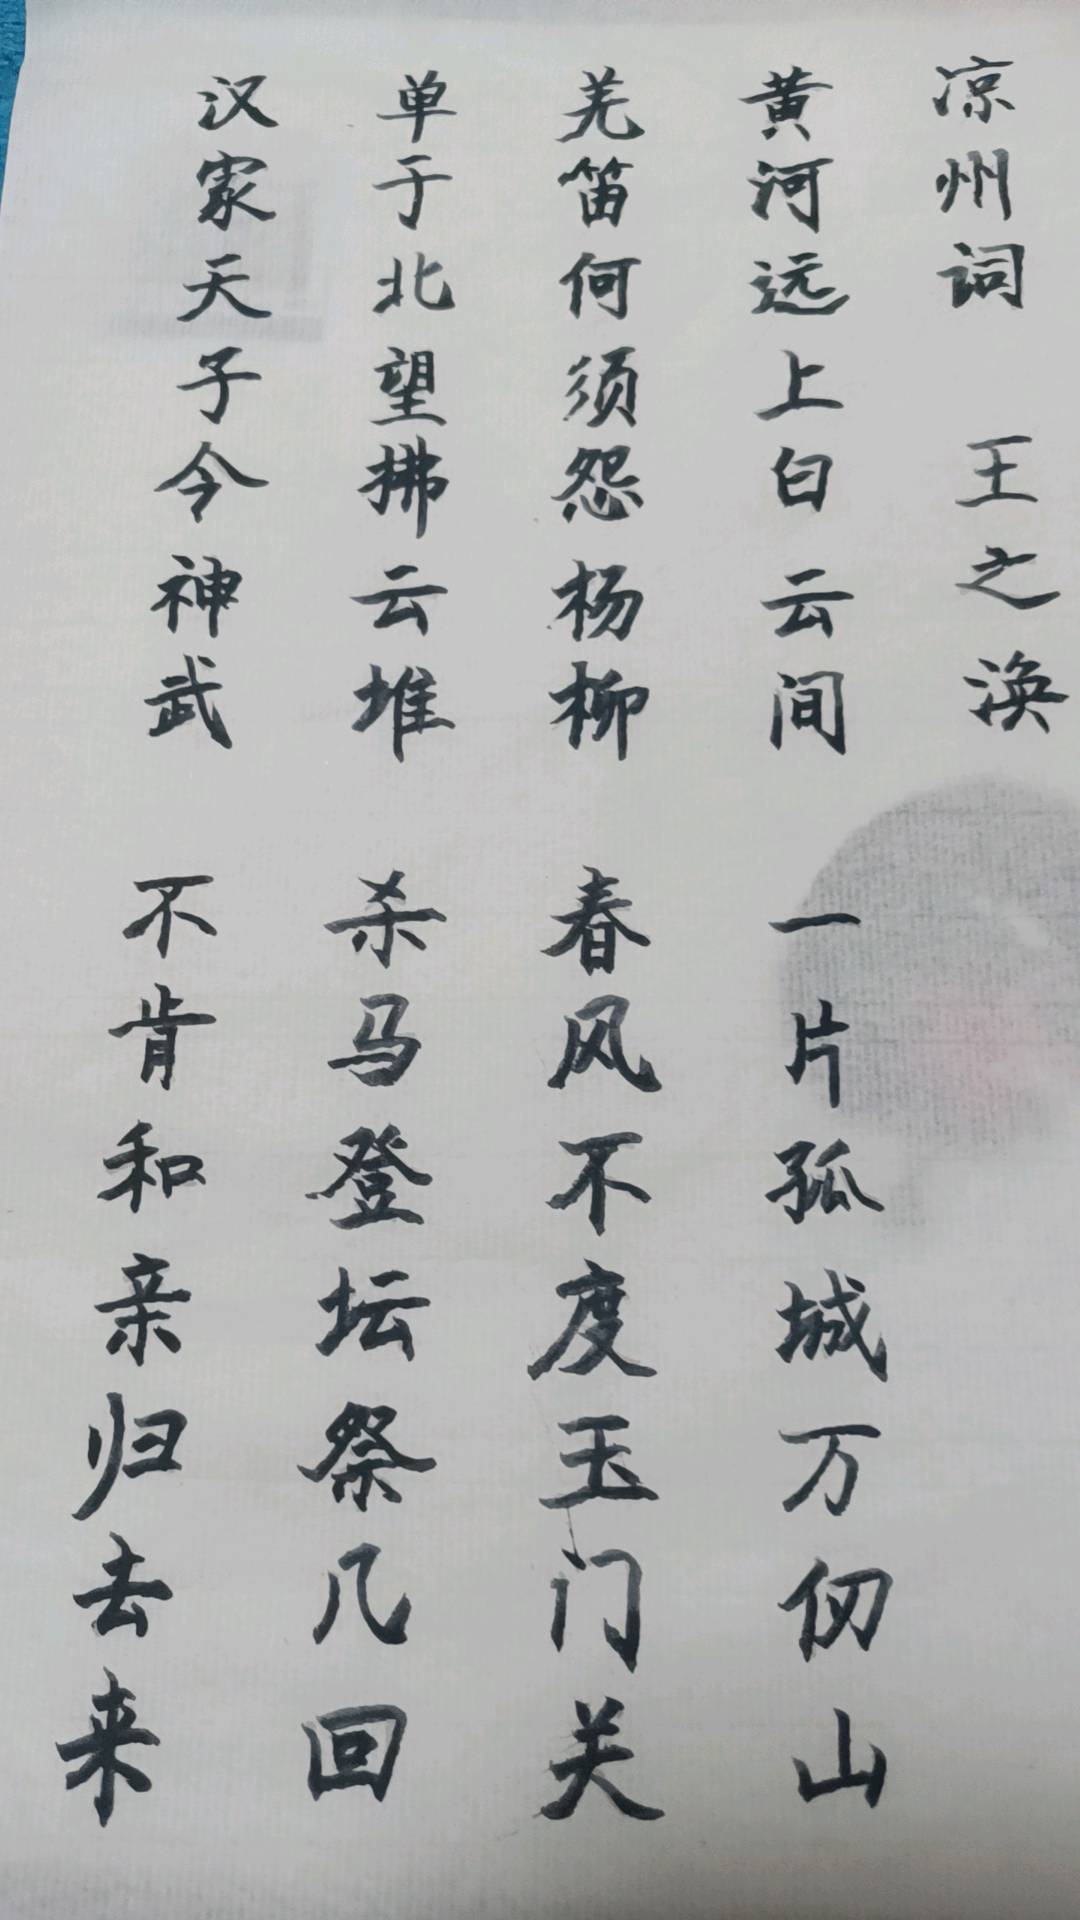 凉州词 王之涣
黄河远上白云间 一片孤城万仞山
羌笛何须怨杨柳 春风不度玉门关
单于北望拂云堆 杀马登坛祭几回
汉家天子今神武 不肯和亲归去来